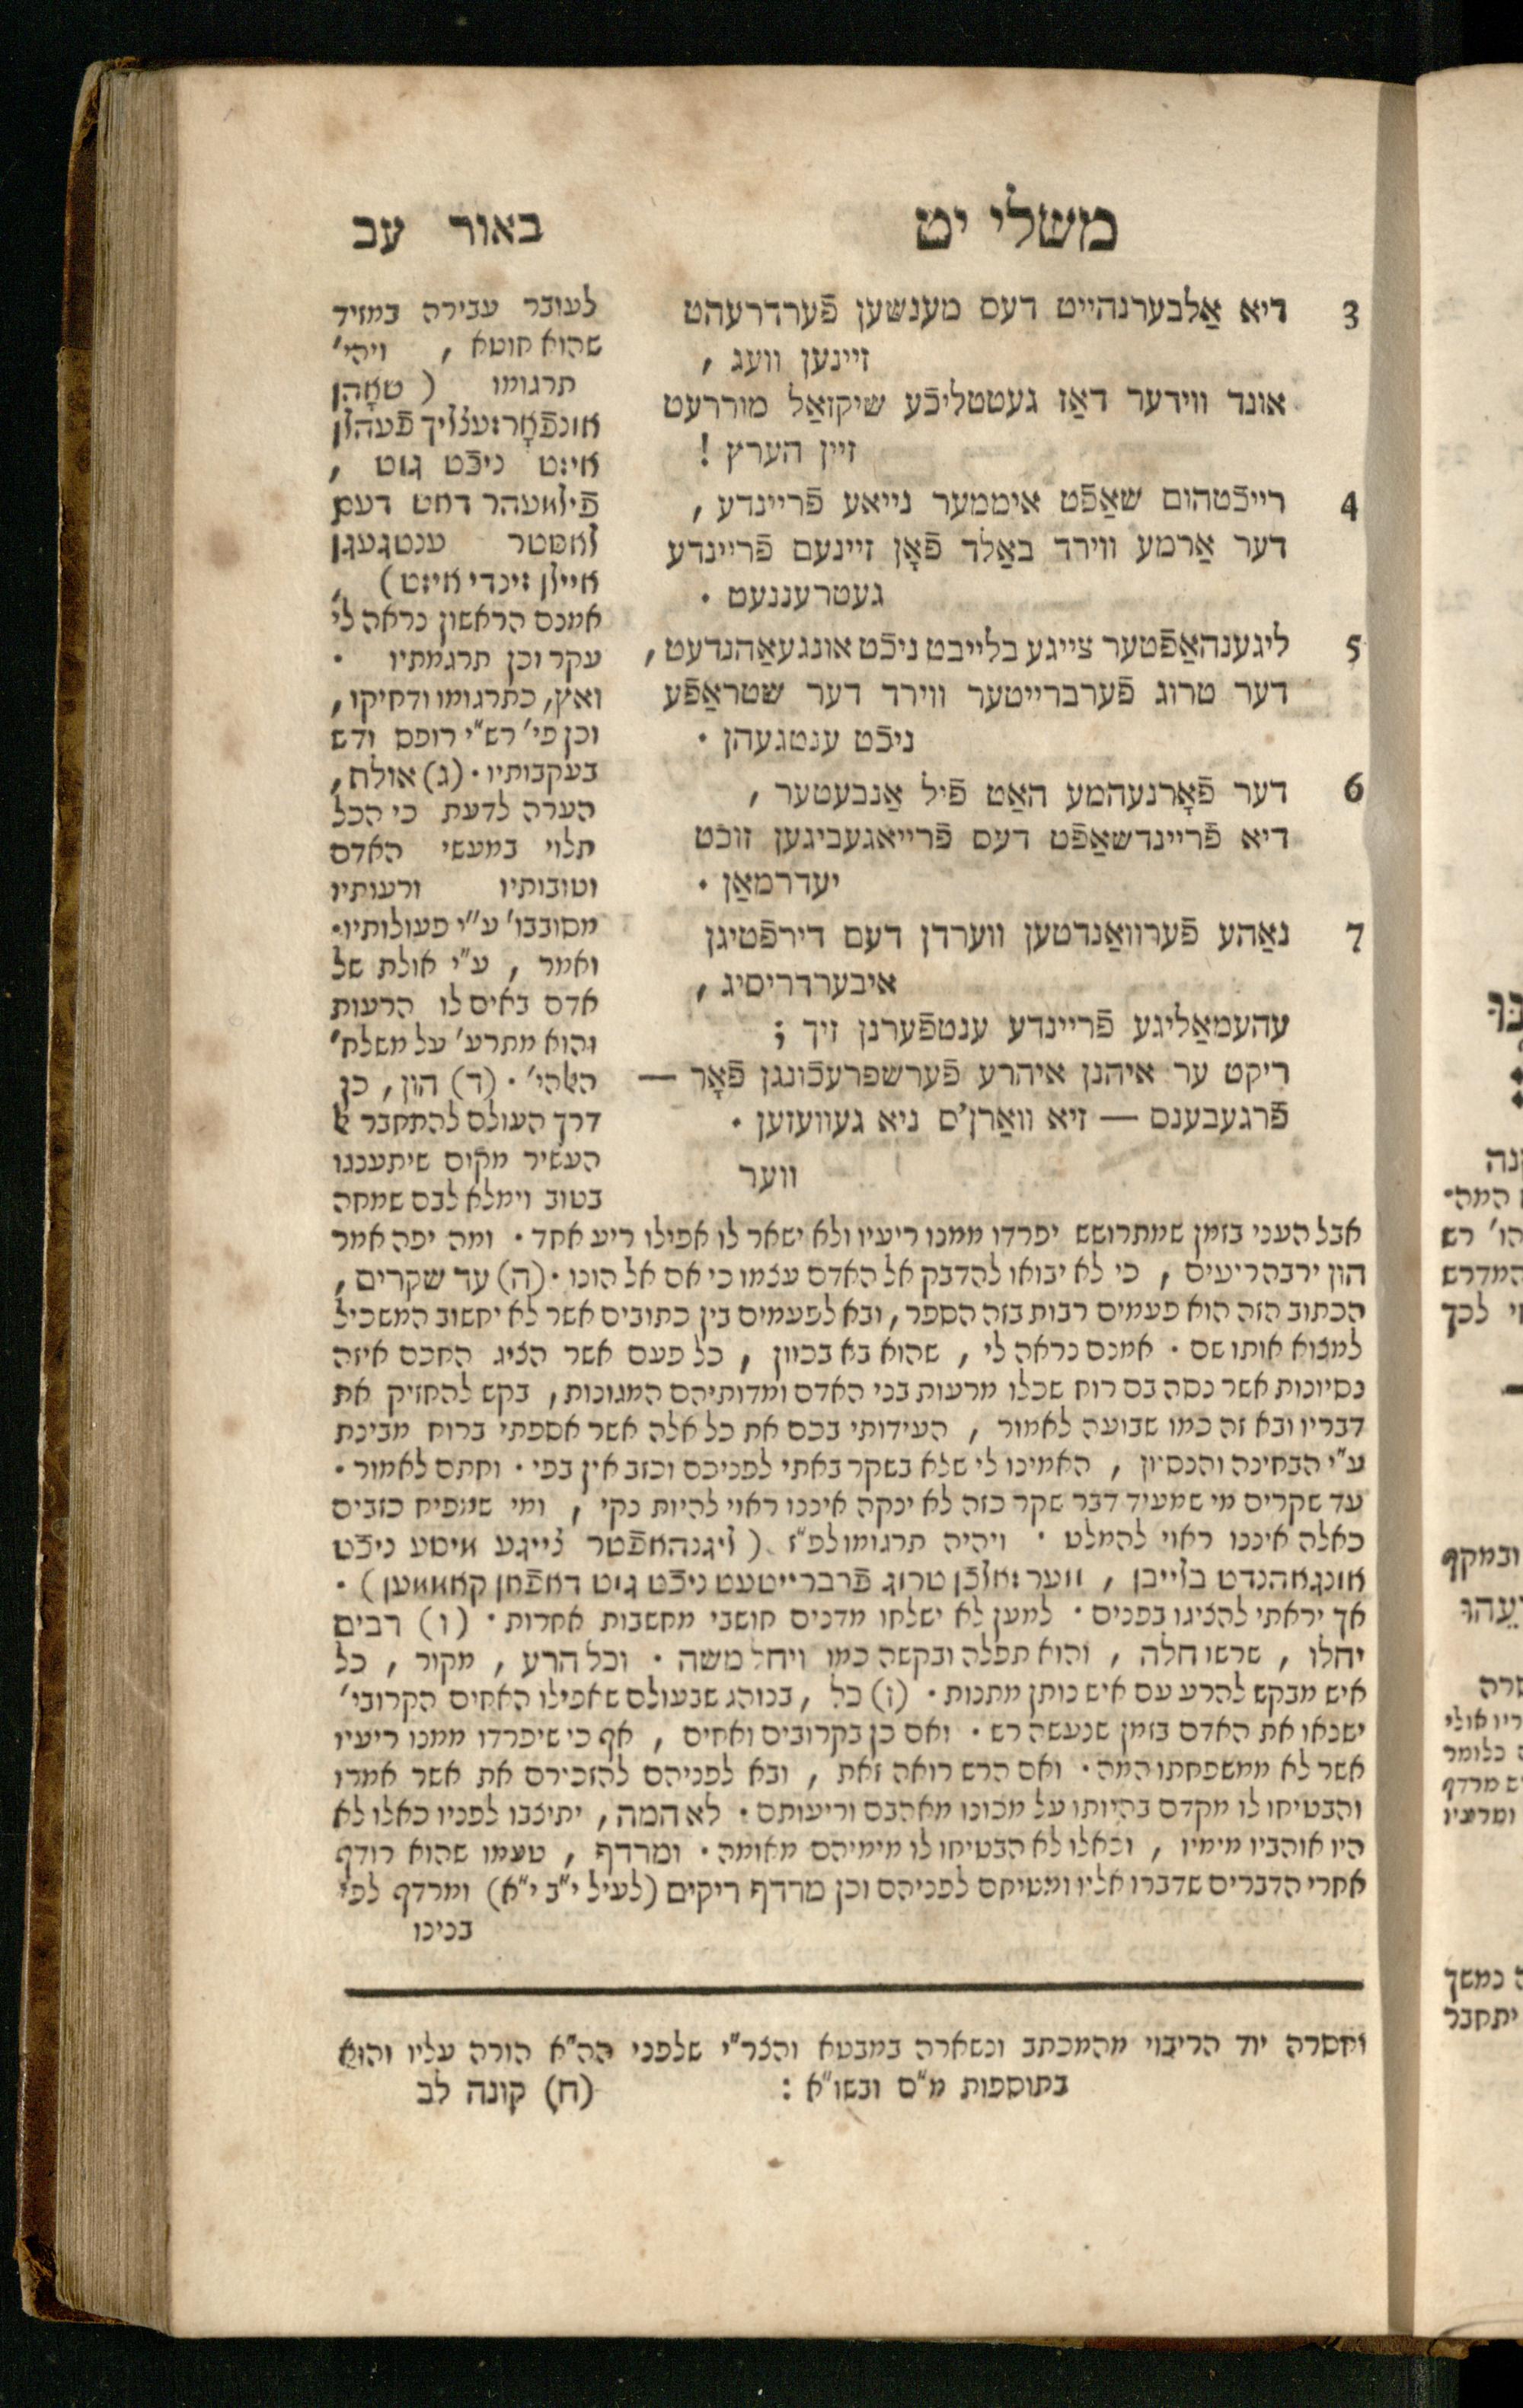 משלי יט
באור עב
3 דיא אַלבערנהייט דעס מענשען פֿערדרעהט
זיינען וועג ,
אונד ווידער דאַז געטטליכֿע שיקזאַל מוררעט
זיין הערץ !
4 רייכֿטהום שאַפֿט איממער נייאע פֿריינדע ,
דער אַרמע ווירד באַלד פֿאָן זיינעם פֿריינדע
געטרעננעט .
5 ליגענהאַפֿטער צייגע בלייבט ניכֿט אונגעאַהנדעט ,
דער טרוג פֿערברייטער ווירד דער שטראַפֿע
ניכֿט ענטגעהן .
6 דער פֿאָרנעהמע האַט פֿיל אַנבעטער ,
דיא פֿריינדשאַפֿט דעס פֿרייאגעביגען זוכֿט
יעדרמאַן .
7 נאַהע פֿערוואַנדטען ווערדן דעם דירפֿטיגן
איבערדריסיג ,
עהעמאַליגע פֿריינדע ענטפֿערנן זיך ;
ריקט ער איהנן איהרע פֿערשפרעכֿונגן פֿאָר —
פֿרגעבענס — זיא וואַרן'ס ניא געוועזען .
ווער
לעובר עבירה במזיד
שהוא חוטא , ויהי'
תרגומו ( טאָהן
אונפֿאָרזעצליך פֿעהלן
איזט ניכֿט גוט ,
פֿילמעהר דאט דעם
לאסטר ענטגעגן
איילן זינדי איזט) ,
אמנם הראשון נראה לי
עקר וכן תרגמתיו .
ואץ, כתרגומו ודחיקו,
וכן פי' רש"י רופס ודש
בעקבותיו . (ג) אולת,
הערה לדעת כי הכל
תלוי במעשי האדם
וטובותיו ורעותיו
מסובבו' ע"י פעולותיו .
ואמר , ע"י אולת של
אדם באים לו הרעות
והוא מתרע' על משלח'
האהי' . (ד) הון, כן
דרך העולם להתחבר א
העשיר מקום שיתענגו
בטוב וימלא לבם שמחה
אבל העני בזמן שמתרושש יפרדו ממנו ריעיו ולא ישאר לו אפילו ריע אחד . ומה יפה אמר
הון ירבה ריעים , כי לא יבואו להדבק אל האדם עצמו כי אם אל הונו . (ה) עד שקרים ,
הכתוב הזה הוא פעמים רבות בזה הספר, ובא לפעמים בין כתובים אשר לא יחשוב המשכיל
למצוא אותו שם . אמנם נראה לי , שהוא בא בכוון , כל פעם אשר הציג החכם איזה
נסיונות אשר נסה בם רוח שכלו מרעות בני האדם ומדותיהם המגונות, בקש להחזיק את
דבריו ובא זה כמו שבועה לאמור , העידותי בכם את כל אלה אשר אספתי ברוח מבינת
ע"י הבחינה והנסיון , האמינו לי שלא בשקר באתי לפניכם וכזב אין בפי . וחתם לאמור .
עד שקרים מי שמעיד דבר שקר כזה לא ינקה איננו ראוי להיות נקי , ומי שמפיח כזבים
כאלה איננו ראוי להמלט . ויהיה תרגומו לפ"ז ( ליגנהאפֿטר צייגע איסע ניכֿט
אונגאהנדט בלייבן , ווער זאלכֿן טרוג פֿרברייטעט ניכֿט גוט דאפֿאן קאממען) .
אך יראתי להציגו בפנים . למען לא ישלחו מדנים חושבי מחשבות אחרות . (ו) רבים
יחלו , שרשו חלה , והוא תפלה ובקשה כמו ויחל משה . וכל הרע , מקור , כל
איש מבקש להרע עם איש נותן מתנות . (ז) כל , בנוהג שבעולם שאפילו האחים הקרובי'
ישנאו את האדם בזמן שנעשה רש . ואם כן בקרובים ואחים , אף כי שיפרדו ממנו ריעיו
אשר לא ממשפחתו המה . ואם הרש רואה זאת , ובא לפניהם להזכירם את אשר אמרו
והבטיחו לו מקדם בהיותו על מכונו מאהבם וריעותם . לא המה, יתיצבו לפניו כאלו לא
היו אוהביו מימיו , וכאלו לא הבטיחו לו מימיהם מאומה . ומרדף , טעמו שהוא רודף
אחרי הדברים שדברו אליו ומטיחם לפניהם וכן מרדף ריקים (לעיל י"ב י"א) ומרדף לפי
בנינו
וחסרה יוד הריבוי מהמכתב ונשארה במבטא והצר"י שלפני הה"א הורה עליו והוא
בתוספות מ"ס ובשו"א : (ח) קונה לב